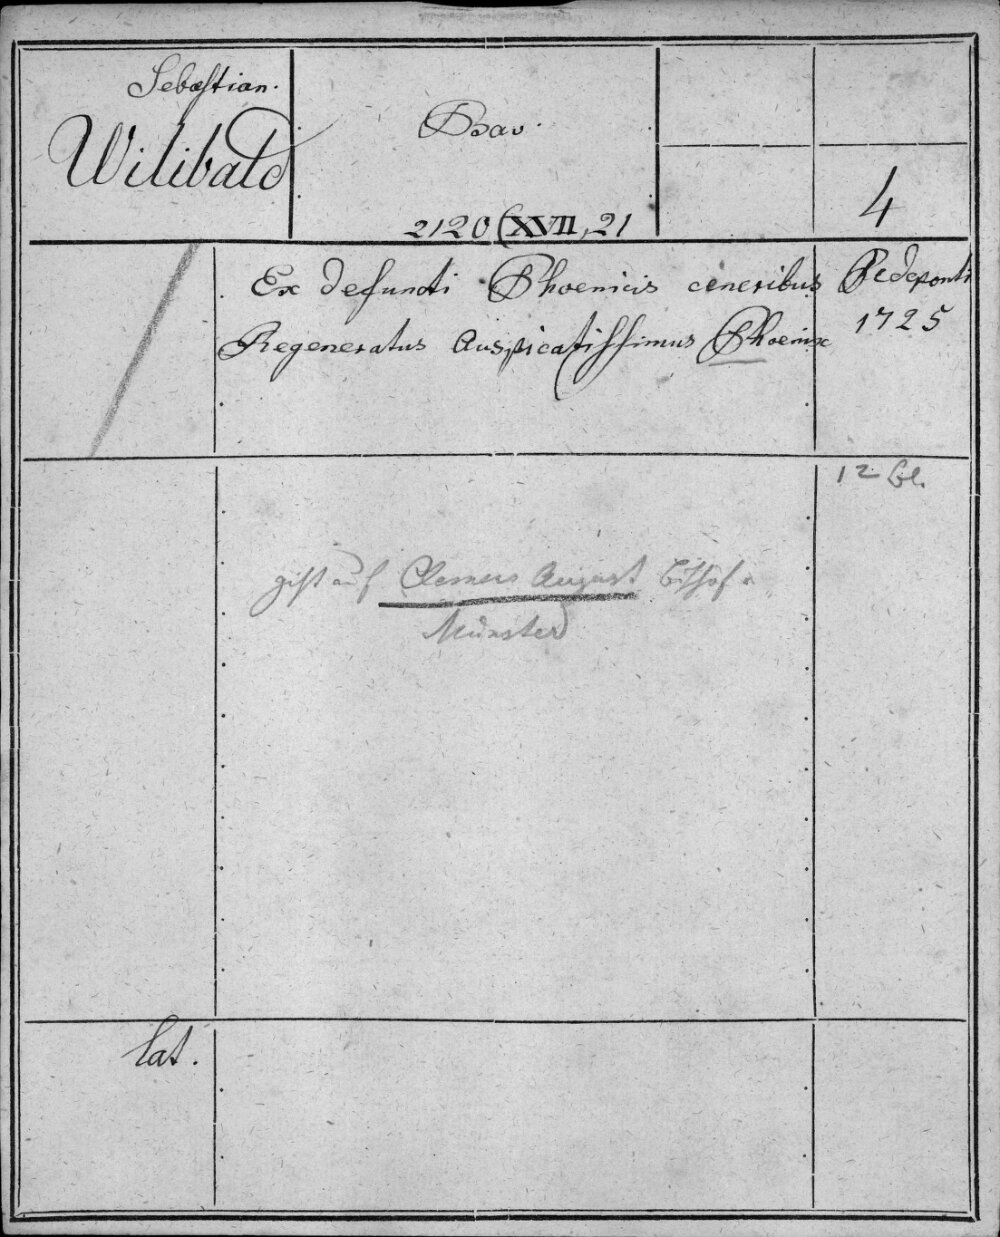 Sebastian.
Wilibald
Bav.
2120 (XVII, 21
4
Ex defuncti Phoenicis cineribus
Regeneratus Auspicatissimus Phoenix
Pedeponti
1725
12 Bl.
geht auf Clemens August Bischof v.
Münster
lat.